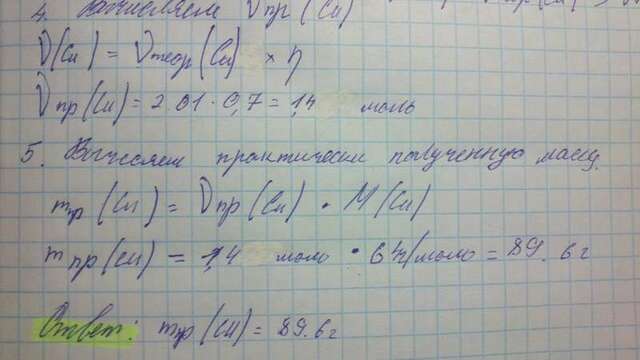 4. Вычисляем νпр (Cu)
ν(Cu) = νтеор (Cu) × η
νпр (Cu) = 2.01 · 0,7 = 1,4 моль
5. Вычесляем практически полученную массу.
mпр (Cu) = νпр (Cu) · M (Cu)
mпр (Cu) = 1,4 моль · 64г/моль = 89.6г
Ответ: mпр (Cu) = 89.6г